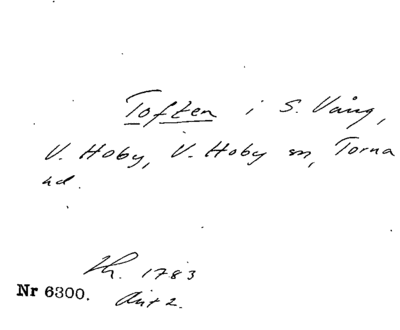 Toften i S. Vång,
V. Hoby, V. Hoby sn, Torna
hd.
Lh. 1783
Nr 6300. Akt 2.